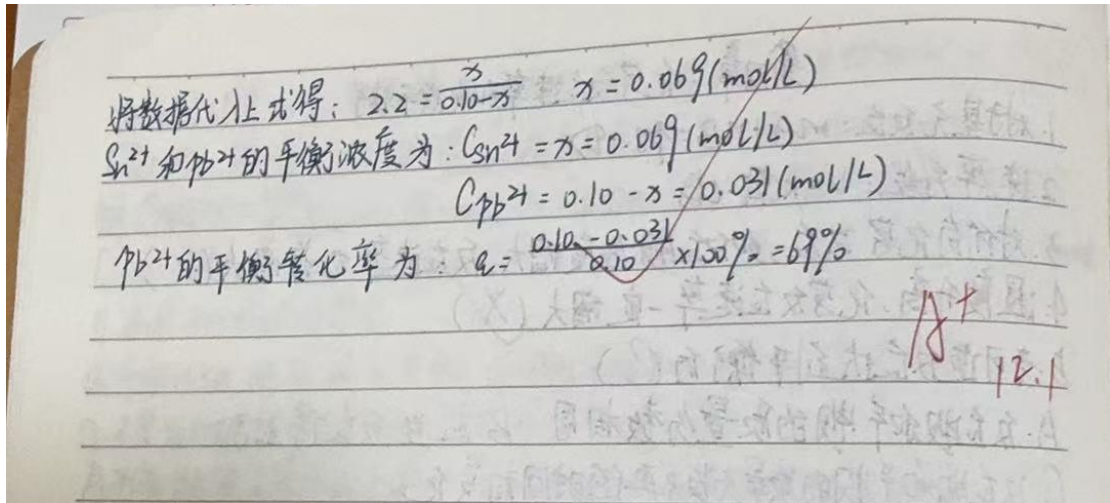 将数据代入上式得: 2.2 = x/(0.10-x) x = 0.069(mol/L)
Sn²⁺和pb²⁺的平衡浓度为: Csn²⁺ = x = 0.069(mol/L)
Cpb²⁺ = 0.10 - x = 0.031(mol/L)
pb²⁺的平衡转化率为: a = (0.10-0.031)/0.10 ×100% = 69%
A⁺
12.1